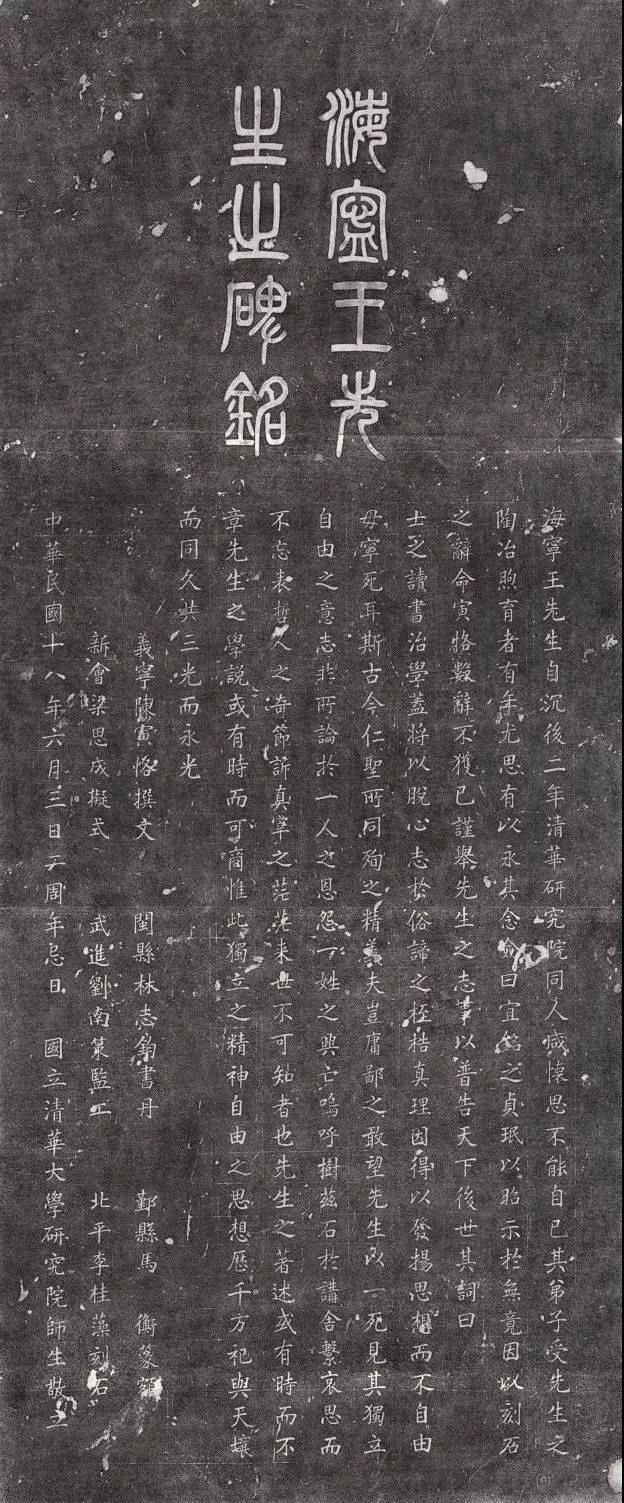 海寧王先
生之碑銘
海寧王先生自沉後二年清華研究院同人咸懷思不能自已其弟子受先生之
陶冶煦育者有年尤思有以永其念僉曰宜銘之貞珉以昭示於無竟因以刻石
之辭命寅恪數辭不獲已謹舉先生之志事以普告天下後世其詞曰
士之讀書治學蓋將以脫心志於俗諦之桎梏真理因得以發揚思想而不自由
毋寧死耳斯古今仁聖所同殉之精義夫豈庸鄙之敢望先生以一死見其獨立
自由之意志非所論於一人之恩怨一姓之興亡嗚呼樹茲石於講舍繫哀思而
不忘表哲人之奇節訴真宰之茫茫来世不可知者也先生之著述或有時而不
章先生之學說或有時而可商惟此獨立之精神自由之思想歷千万祀與天壤
而同久共三光而永光
義寧陳寅恪撰文 閩縣林志鈞書丹 鄞縣馬衡篆額
新會梁思成擬式 武進劉南策監工 北平李桂藻刻石
中華民國十八年六月三日二周年忌日 國立清華大學研究院師生敬立